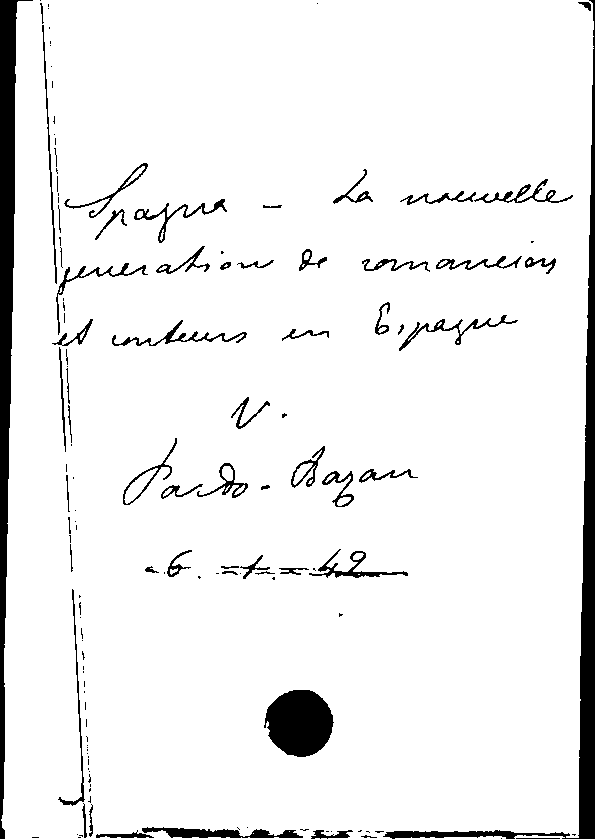 Spagna - La nouvelle
generation de romanciers
et conteurs en Espagne
V.
Pardo-Bazan
6. 1. 42